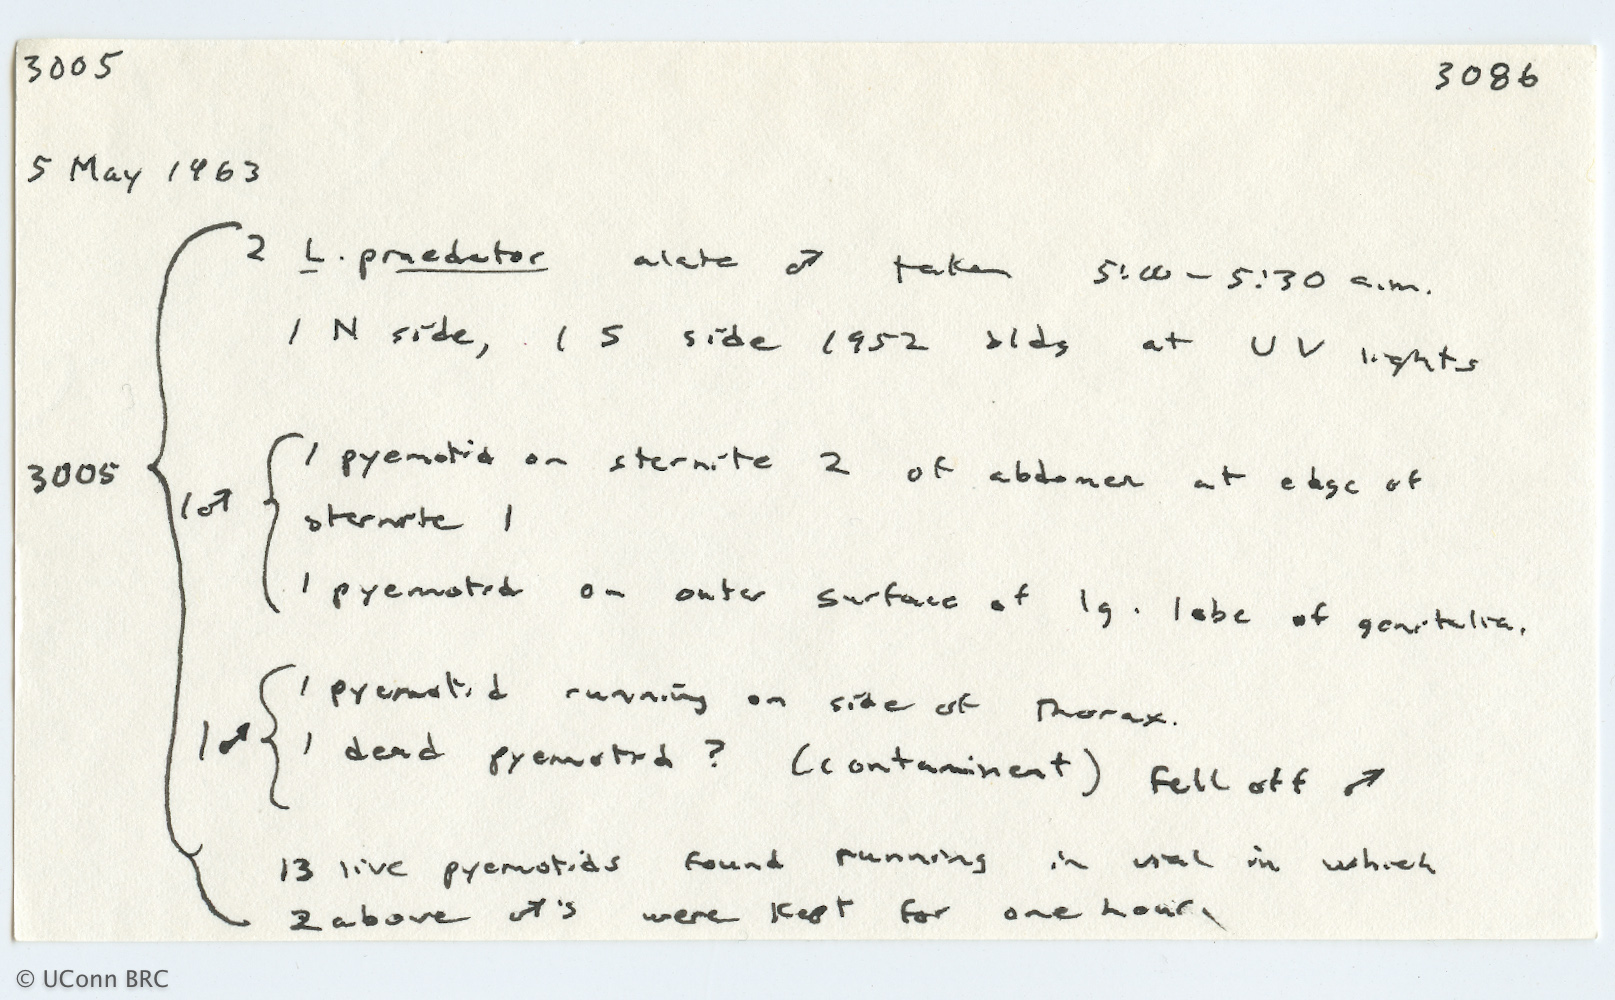 3005 3086
5 May 1963
2 L. praedator alate ♂ taken 5:00-5:30 a.m.
1 N side, 1 S side 1952 bldg at UV lights
3005
1♂ 1 pyemotid on sternite 2 of abdomen at edge of
sternite 1
1 pyemotid on outer surface of lg. lobe of genitalia.
1 pyemotid running on side of thorax.
1♂ 1 dead pyemotid? (contaminent) fell off ♂
13 live pyemotids found running in vial in which
2 above ♂'s were kept for one hour.
© UConn BRC